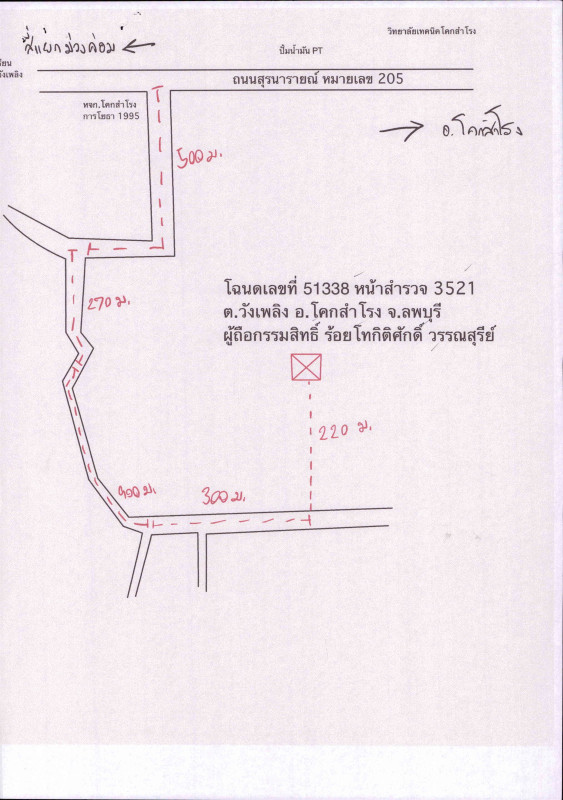 วิทยาลัยเทคนิคโคกสำโรง
สี่แยกม่วงค่อม
ปั๊มน้ำมัน PT
วังเพลิง
ถนนสุรนารายณ์ หมายเลข 205
หจก.โคกสำโรง
การโยธา 1995
อ.โคกสำโรง
500 ม.
270 ม.
โฉนดเลขที่ 51338 หน้าสำรวจ 3521
ต.วังเพลิง อ.โคกสำโรง จ.ลพบุรี
ผู้ถือกรรมสิทธิ์ ร้อยโทกิติศักดิ์ วรรณสุรีย์
220 ม.
900 ม.
300 ม.